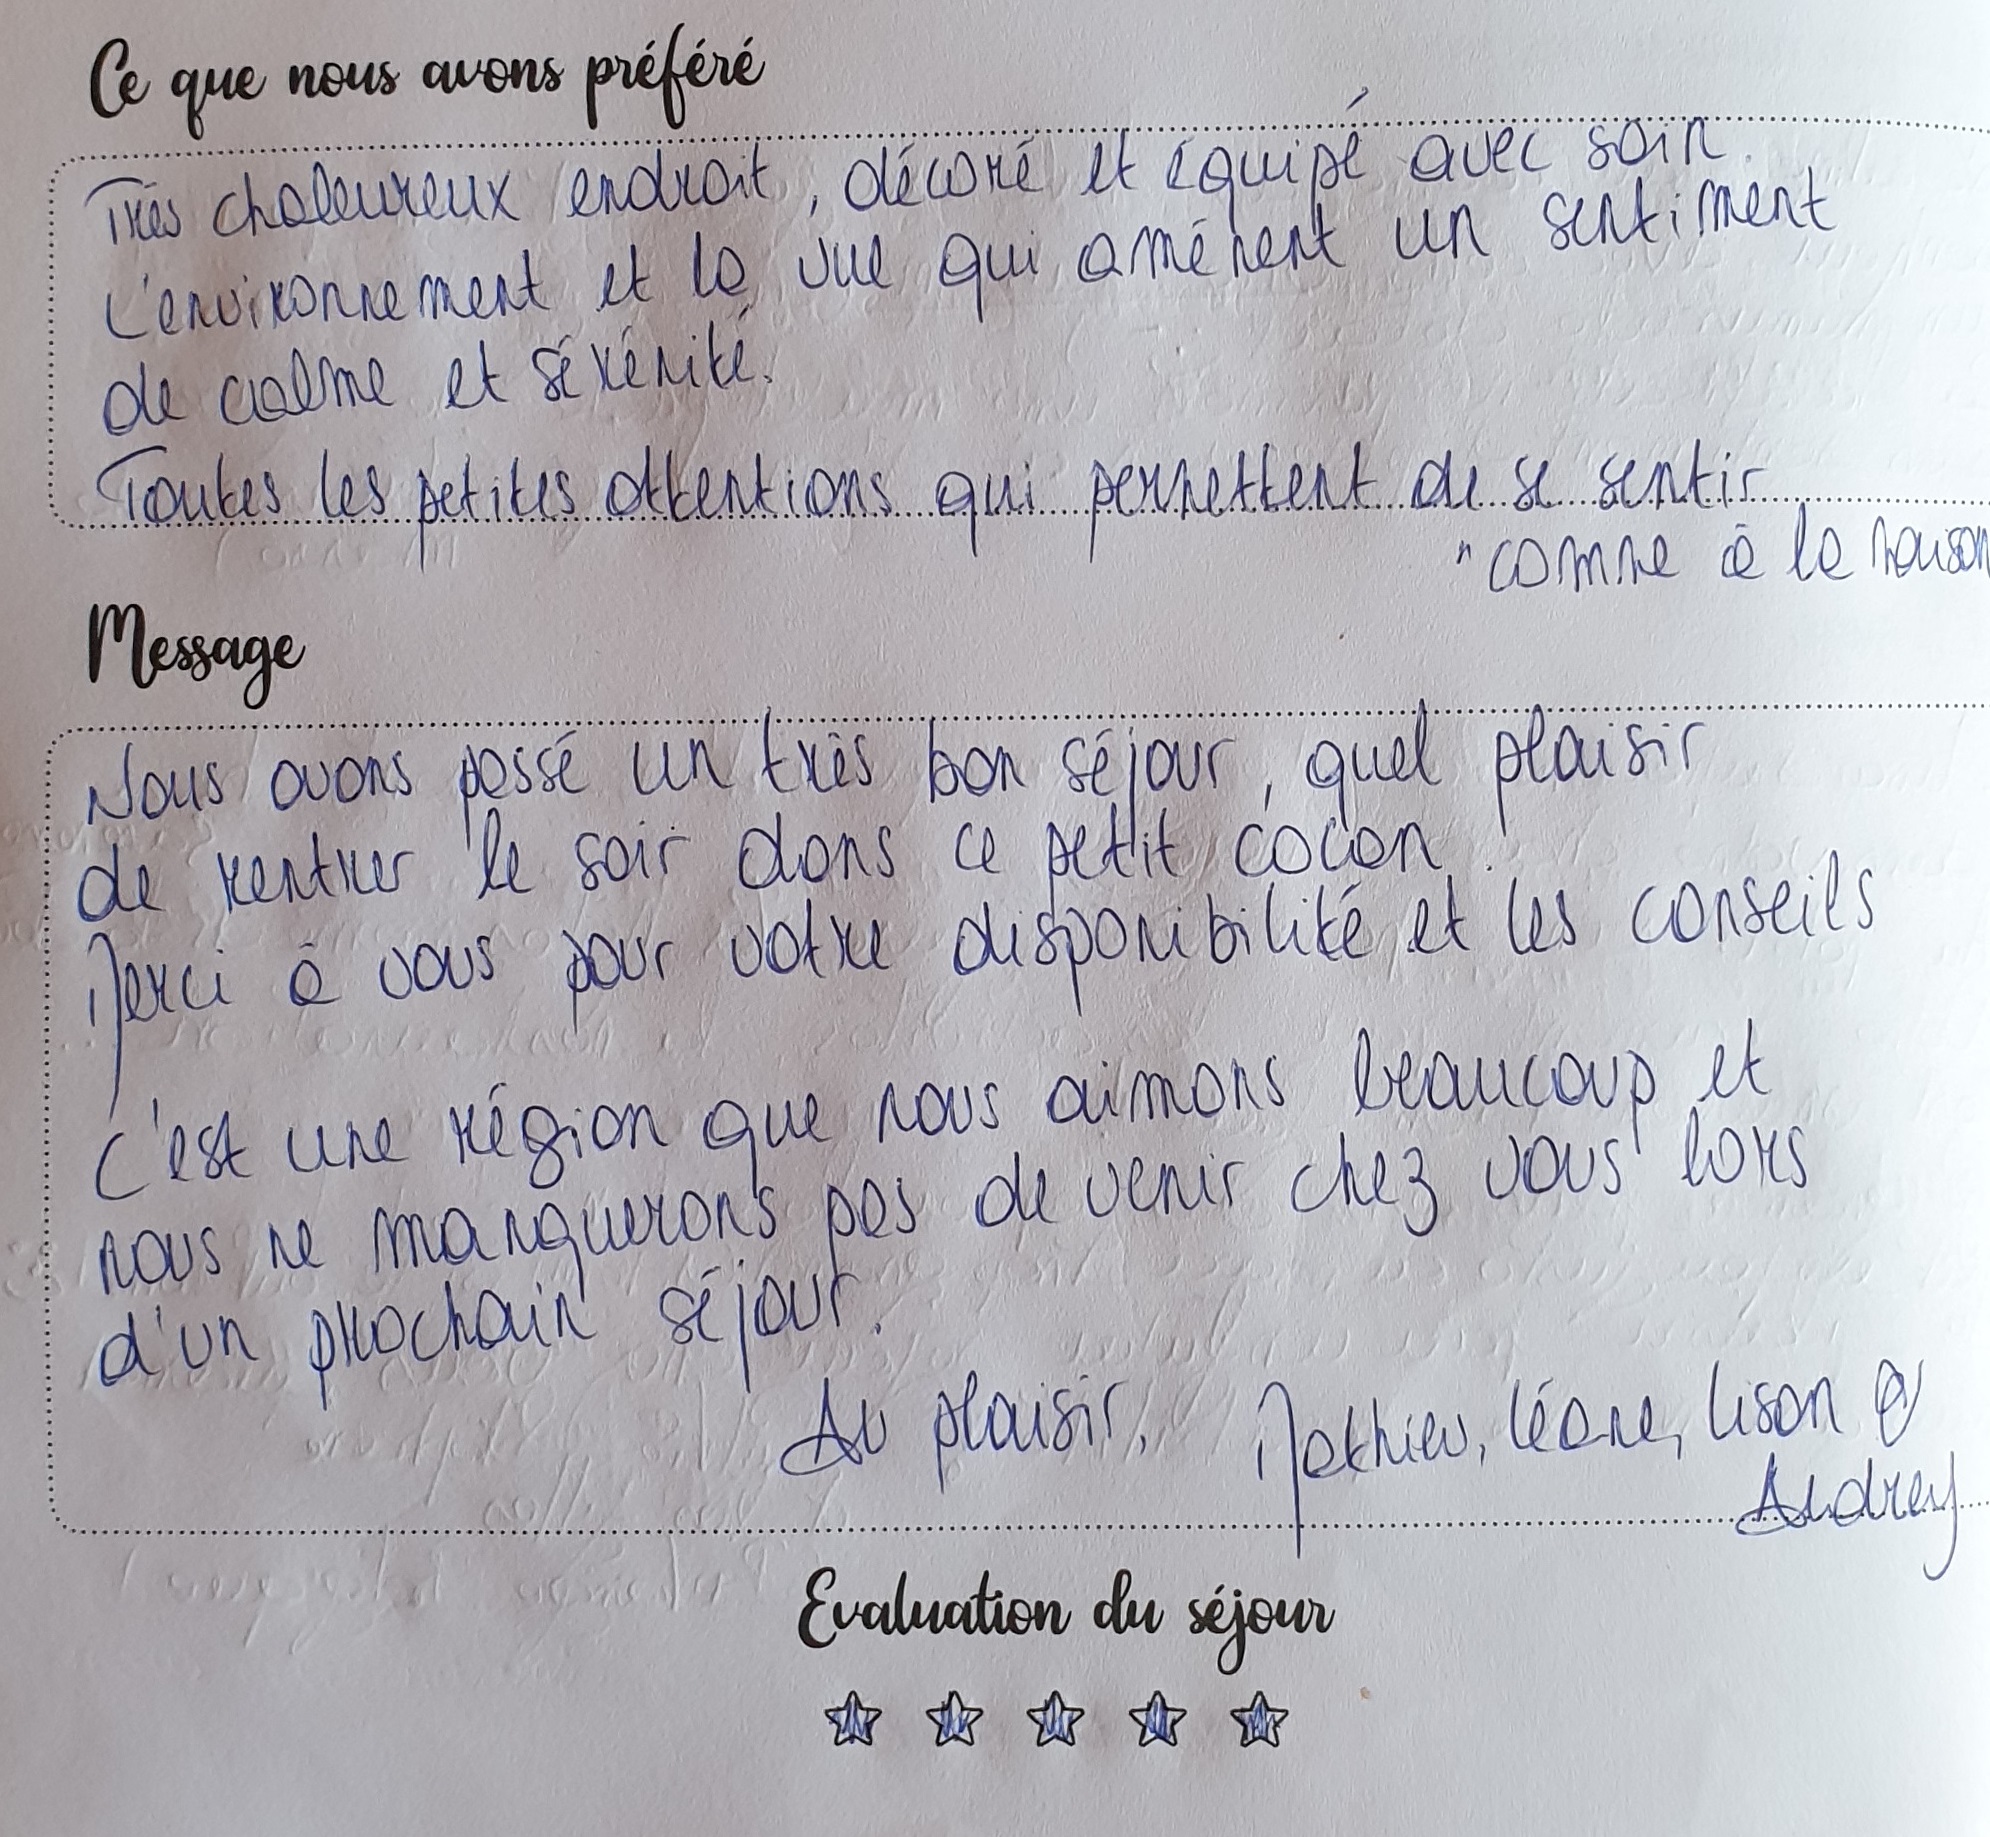 Ce que nous avons préféré
Très chaleureux endroit, décoré et équipé avec soin.
L'environnement et la vue qui amènent un sentiment
de calme et sérénité.
Toutes les petites attentions qui permettent de se sentir
"comme à la maison
Message
Nous avons passé un très bon séjour, quel plaisir
de rentrer le soir dans ce petit cocon.
Merci à vous pour votre disponibilité et les conseils
C'est une région que nous aimons beaucoup et
nous ne manquerons pas de venir chez vous lors
d'un prochain séjour.
Au plaisir, Mathieu, Léane, Lison &
Audrey
Evaluation du séjour